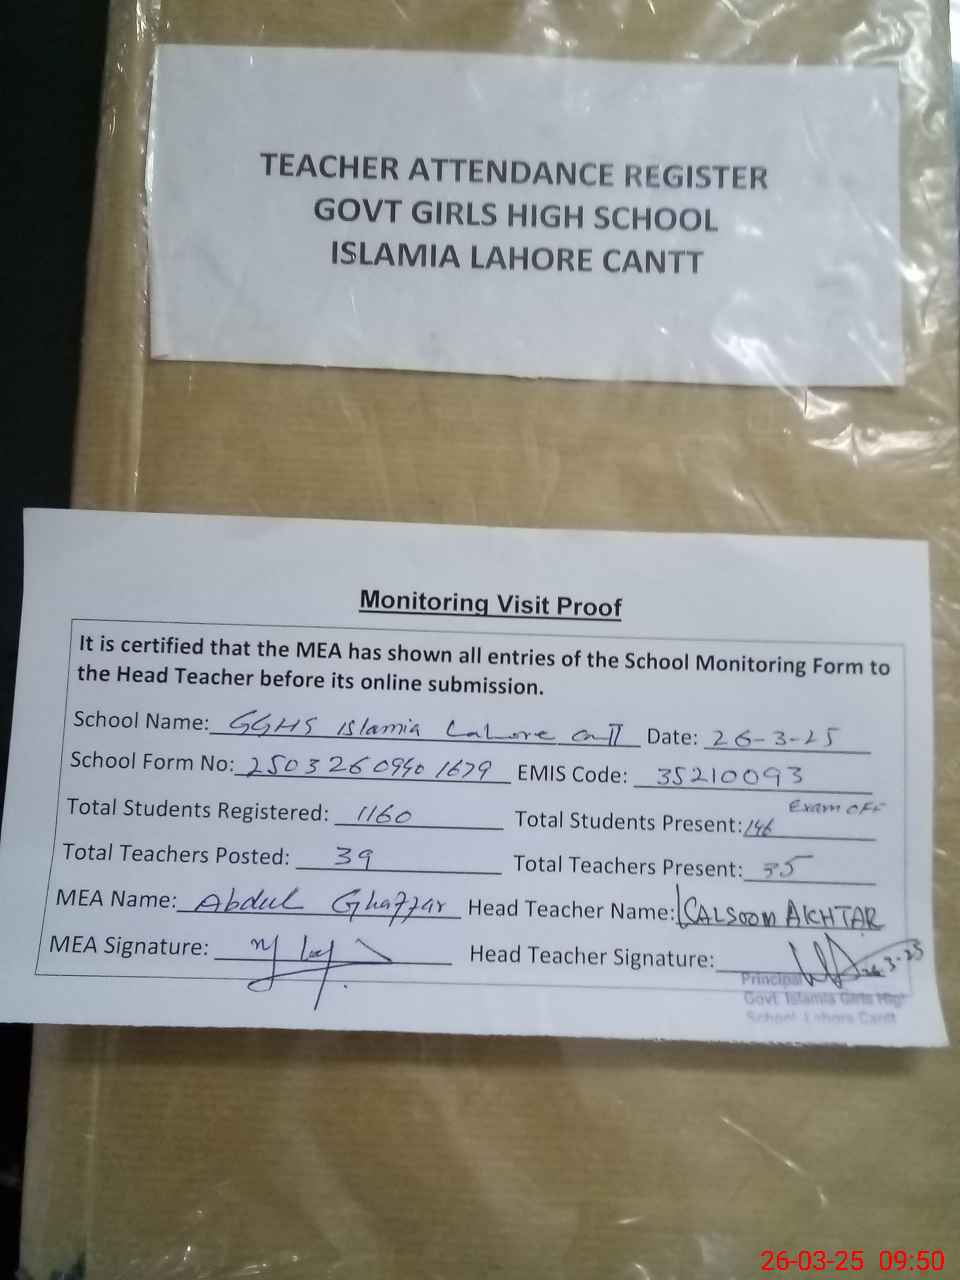 TEACHER ATTENDANCE REGISTER
GOVT GIRLS HIGH SCHOOL
ISLAMIA LAHORE CANTT
Monitoring Visit Proof
It is certified that the MEA has shown all entries of the School Monitoring Form to
the Head Teacher before its online submission.
School Name: GGHS Islamia Lahore Cantt Date: 26-3-25
School Form No: 2503260940 1679 EMIS Code: 35210093
Exam OFF
Total Students Registered: 1160 Total Students Present: 146
Total Teachers Posted: 39 Total Teachers Present: 35
MEA Name: Abdul Ghaffar Head Teacher Name: KALSOOM AKHTAR
MEA Signature: Head Teacher Signature: 26-3-25
Principal
Govt. Islamia Girls High
School Lahore Cantt
26-03-25 09:50